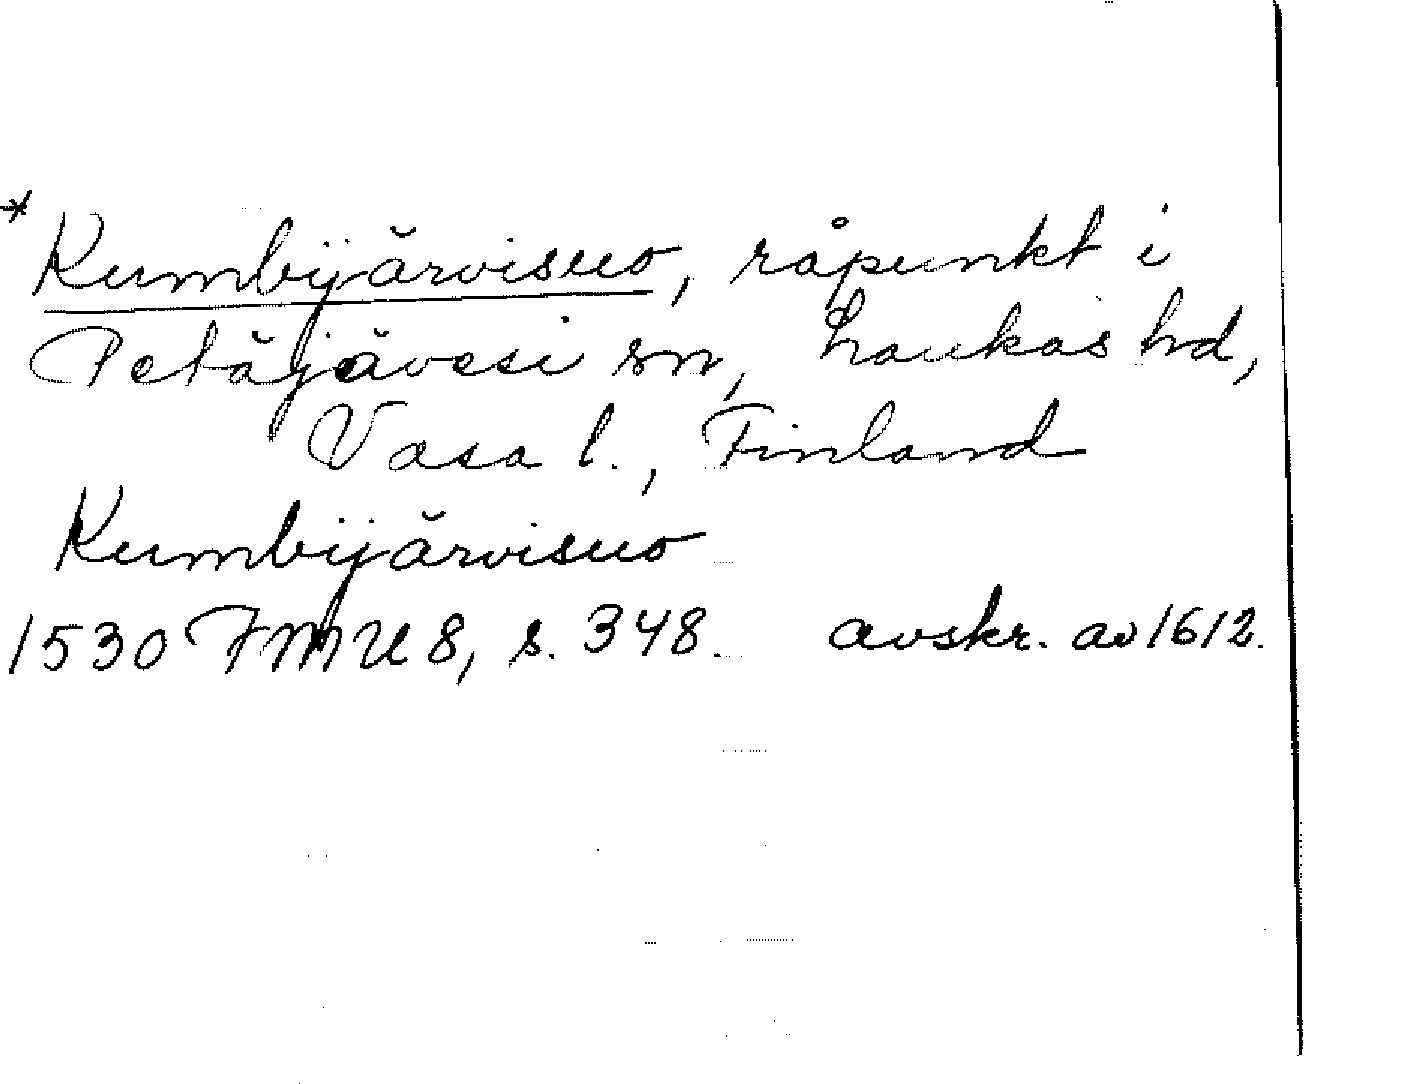 * Kumbijärvisuo, råpunkt i
Petäjävesi sn, Laukas hd,
Vasa l., Finland
Kumbijärvisuo
1530 FMU 8, s. 348. avskr. av 1612.